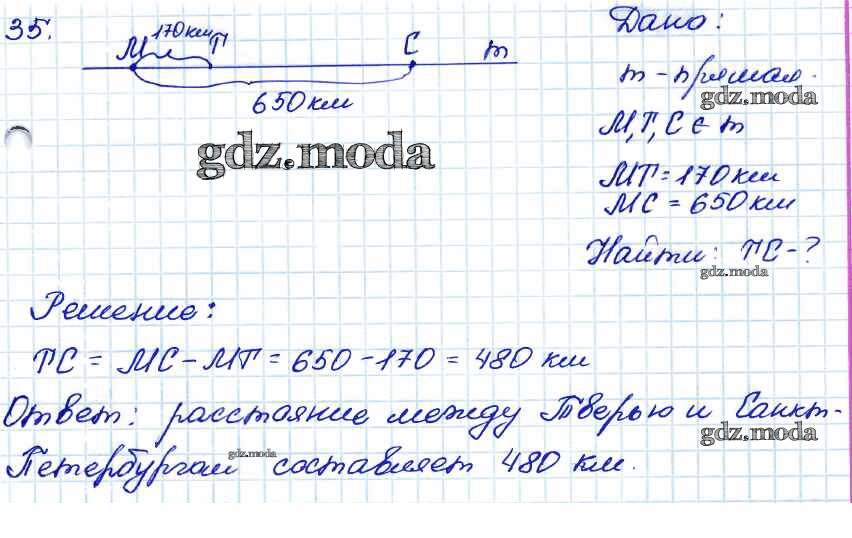 35.
170 км
М Т С m
650 км
gdz.moda
Дано:
m - прямая.
gdz.moda
М, Т, С ∈ m
МТ = 170 км
МС = 650 км
Найти: ТС - ?
gdz.moda
Решение:
ТС = МС - МТ = 650 - 170 = 480 км
Ответ: расстояние между Тверью и Санкт-
gdz.moda
Петербургом составляет 480 км.
gdz.moda